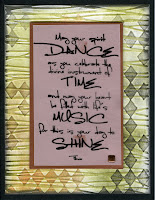 May your spirit
DANCE
as you celebrate the
divine instrument of
TIME
and may your heart
be filled with life's
MUSIC
for this is your day to
SHINE